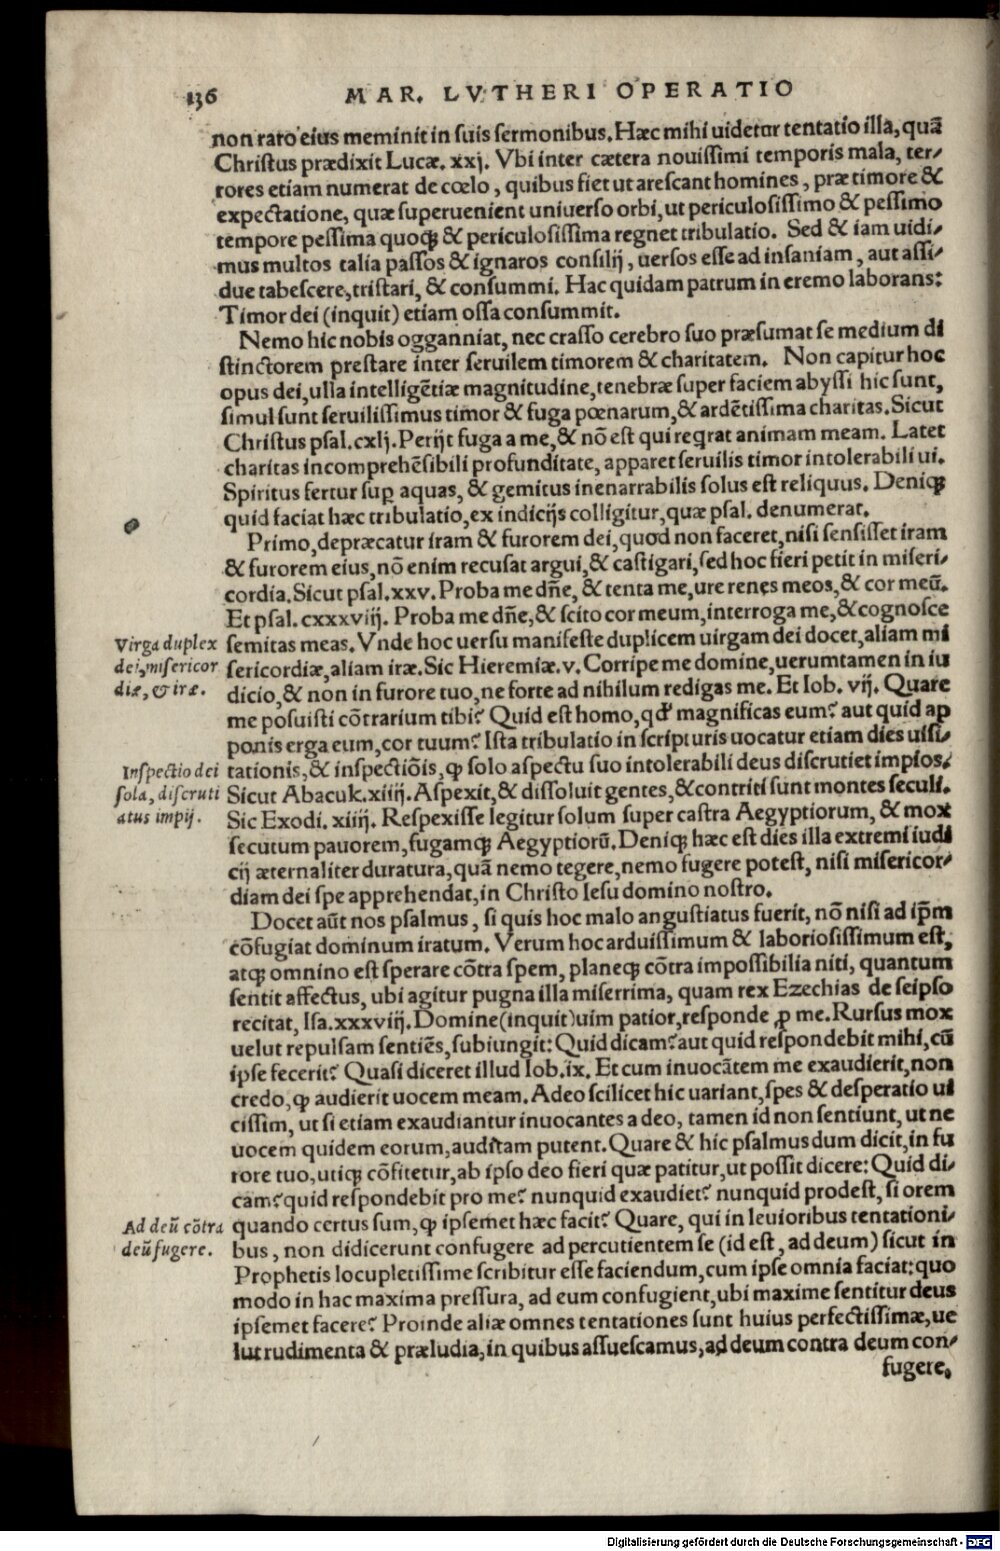 136 MAR. LVTHERI OPERATIO
non raro eius meminit in suis sermonibus. Hæc mihi uidetur tentatio illa, quã
Christus prædixit Lucæ. xxj. Vbi inter cætera nouissimi temporis mala, ter-
rores etiam numerat de cœlo, quibus fiet ut arescant homines, præ timore &
expectatione, quæ superuenient uniuerso orbi, ut periculosissimo & pessimo
tempore pessima quoq; & periculosissima regnet tribulatio. Sed & iam uidi-
mus multos talia passos & ignaros consilij, uersos esse ad insaniam, aut assi-
due tabescere, tristari, & consummi. Hac quidam patrum in eremo laborans:
Timor dei (inquit) etiam ossa consummit.
Nemo hic nobis ogganniat, nec crasso cerebro suo præsumat se medium di
stinctorem prestare inter seruilem timorem & charitatem. Non capitur hoc
opus dei, ulla intelligẽtiæ magnitudine, tenebræ super faciem abyssi hic sunt,
simul sunt seruilissimus timor & fuga pœnarum, & ardẽtissima charitas. Sicut
Christus psal. cxlj. Perijt fuga a me, & nõ est qui reqrat animam meam. Latet
charitas incomprehẽsibili profunditate, apparet seruilis timor intolerabili ui.
Spiritus fertur sup aquas, & gemitus inenarrabilis solus est reliquus. Deniq;
quid faciat hæc tribulatio, ex indicijs colligitur, quæ psal. denumerat.
Primo, depræcatur iram & furorem dei, quod non faceret, nisi sensisset iram
& furorem eius, nõ enim recusat argui, & castigari, sed hoc fieri petit in miseri-
cordia. Sicut psal. xxv. Proba me dñe, & tenta me, ure renes meos, & cor meũ.
Et psal. cxxxviij. Proba me dñe, & scito cor meum, interroga me, & cognosce
Virga duplex semitas meas. Vnde hoc uersu manifeste duplicem uirgam dei docet, aliam mi
dei, misericor sericordiæ, aliam iræ. Sic Hieremiæ. v. Corripe me domine, uerumtamen in iu
diæ, & iræ. dicio, & non in furore tuo, ne forte ad nihilum redigas me. Et Iob. vij. Quare
me posuisti cõtrarium tibi? Quid est homo, qd' magnificas eum? aut quid ap
ponis erga eum, cor tuum? Ista tribulatio in scripturis uocatur etiam dies uisi-
Inspectio dei tationis, & inspectiõis, ꝙ solo aspectu suo intolerabili deus discrutiet impios.
sola, discruti Sicut Abacuk. xiiij. Aspexit, & dissoluit gentes, & contriti sunt montes seculi.
atus impij. Sic Exodi. xiiij. Respexisse legitur solum super castra Aegyptiorum, & mox
secutum pauorem, fugamq; Aegyptiorũ. Deniq; hæc est dies illa extremi iudi
cij æternaliter duratura, quã nemo tegere, nemo fugere potest, nisi misericor-
diam dei spe apprehendat, in Christo Iesu domino nostro.
Docet aũt nos psalmus, si quis hoc malo angustiatus fuerit, nõ nisi ad ip̃m
cõfugiat dominum iratum. Verum hoc arduissimum & laboriosissimum est,
atq; omnino est sperare cõtra spem, planeq; cõtra impossibilia niti, quantum
sentit affectus, ubi agitur pugna illa miserrima, quam rex Ezechias de seipso
recitat, Isa. xxxviij. Domine (inquit) uim patior, responde ꝓ me. Rursus mox
uelut repulsam sentiẽs, subiungit: Quid dicam? aut quid respondebit mihi, cũ
ipse fecerit? Quasi diceret illud Iob. ix. Et cum inuocãtem me exaudierit, non
credo, ꝙ audierit uocem meam. Adeo scilicet hic uariant, spes & desperatio ui
cissim, ut si etiam exaudiantur inuocantes a deo, tamen id non sentiunt, ut ne
uocem quidem eorum, auditam putent. Quare & hic psalmus dum dicit, in fu
rore tuo, utiq; cõfitetur, ab ipso deo fieri quæ patitur, ut possit dicere: Quid di-
cam? quid respondebit pro me? nunquid exaudiet? nunquid prodest, si orem
Ad deũ cõtra quando certus sum, ꝙ ipsemet hæc facit? Quare, qui in leuioribus tentationi-
deũ fugere. bus, non didicerunt confugere ad percutientem se (id est, ad deum) sicut in
Prophetis locupletissime scribitur esse faciendum, cum ipse omnia faciat: quo
modo in hac maxima pressura, ad eum confugient, ubi maxime sentitur deus
ipsemet facere? Proinde aliæ omnes tentationes sunt huius perfectissimæ, ue
lut rudimenta & præludia, in quibus assuescamus, ad deum contra deum con-
fugere,
Digitalisierung gefördert durch die Deutsche Forschungsgemeinschaft - DFG